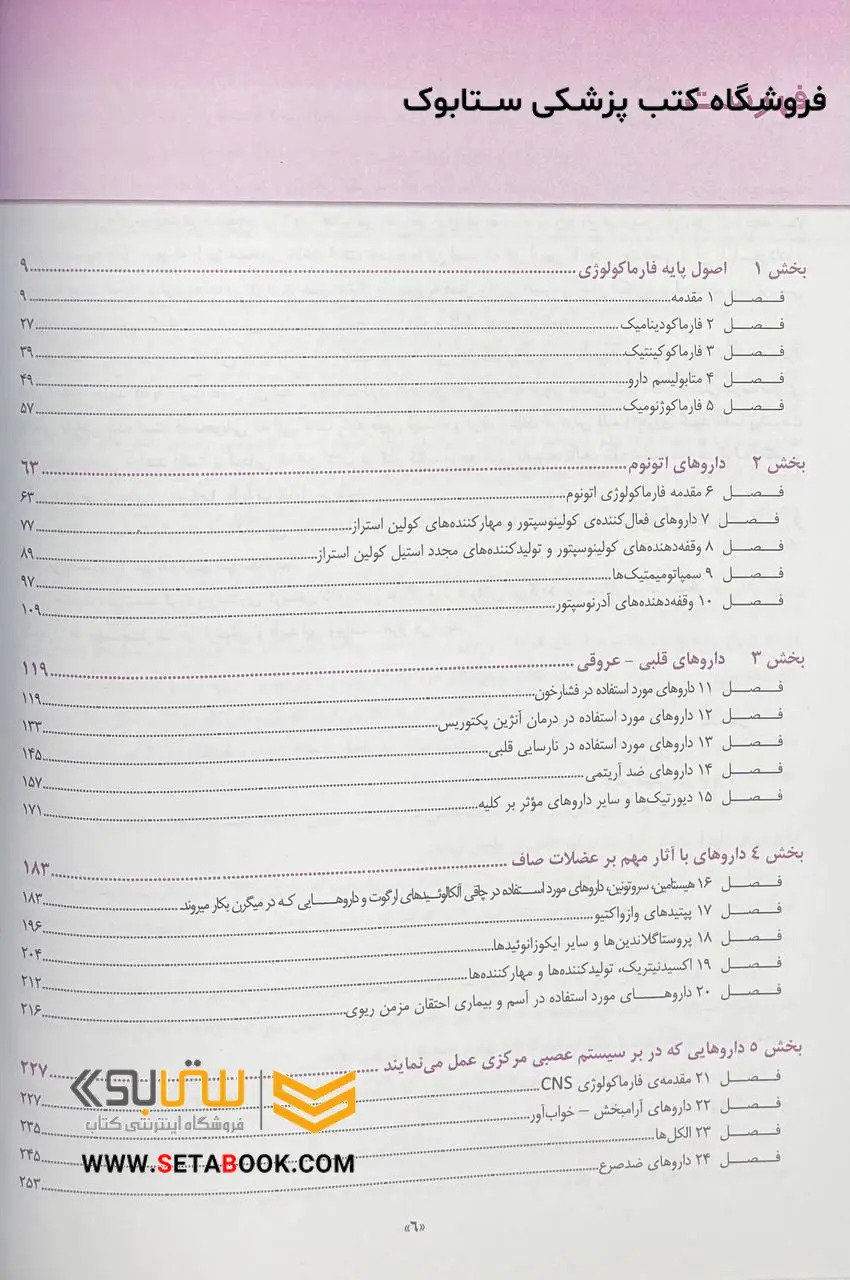 فروشگاه کتب پزشکی ستابوک
بخش ۱ اصول پایه فارماکولوژی ۹
فصل ۱ مقدمه ۹
فصل ۲ فارماکودینامیک ۲۷
فصل ۳ فارماکوکینتیک ۳۹
فصل ۴ متابولیسم دارو ۴۹
فصل ۵ فارماکوژنومیک ۵۷
بخش ۲ داروهای اتونوم ۶۳
فصل ۶ مقدمه فارماکولوژی اتونوم ۶۳
فصل ۷ داروهای فعال‌کننده‌ی کولینوسپتور و مهارکننده‌های کولین استراز ۷۷
فصل ۸ وقفه‌دهنده‌های کولینوسپتور و تولیدکننده‌های مجدد استیل کولین استراز ۸۹
فصل ۹ سمپاتومیمتیک‌ها ۹۷
فصل ۱۰ وقفه‌دهنده‌های آدرنوسپتور ۱۰۹
بخش ۳ داروهای قلبی – عروقی ۱۱۹
فصل ۱۱ داروهای مورد استفاده در فشارخون ۱۱۹
فصل ۱۲ داروهای مورد استفاده در درمان آنژین پکتوریس ۱۳۳
فصل ۱۳ داروهای مورد استفاده در نارسایی قلبی ۱۴۵
فصل ۱۴ داروهای ضد آریتمی ۱۵۷
فصل ۱۵ دیورتیک‌ها و سایر داروهای مؤثر بر کلیه ۱۷۱
بخش ٤ داروهای با آثار مهم بر عضلات صاف ۱۸۳
فصل ۱۶ هیستامین، سروتونین، داروهای مورد استفاده در چاقی آلکالوئیدهای ارگوت و داروهایی که در میگرن بکار میروند ۱۸۳
فصل ۱۷ پپتیدهای وازواکتیو ۱۹۶
فصل ۱۸ پروستاگلاندین‌ها و سایر ایکوزانوئیدها ۲۰۴
فصل ۱۹ اکسیدنیتریک، تولیدکننده‌ها و مهارکننده‌ها ۲۱۲
فصل ۲۰ داروهای مورد استفاده در آسم و بیماری احتقان مزمن ریوی ۲۱۶
بخش ۵ داروهایی که در بر سیستم عصبی مرکزی عمل می‌نمایند ۲۲۷
فصل ۲۱ مقدمه‌ی فارماکولوژی CNS ۲۲۷
فصل ۲۲ داروهای آرامبخش – خواب‌آور ۲۳۵
فصل ۲۳ الکل‌ها ۲۴۵
فصل ۲۴ داروهای ضدصرع ۲۵۳
ستابوک
فروشگاه اینترنتی کتاب
WWW.SETABOOK.COM
«٦»